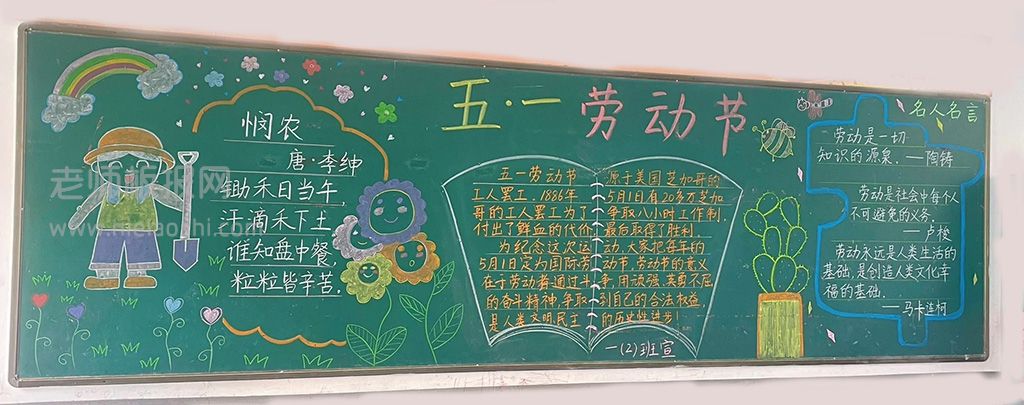 五·一 劳动节
悯农
唐·李绅
锄禾日当午,
汗滴禾下土
谁知盘中餐,
粒粒皆辛苦.
五一劳动节 原于美国芝加哥的
工人罢工. 1886年 5月1日有20多万芝加
哥的工人罢工为了 争取八小时工作制.
付出了鲜血的代价 最后取得了胜利.
为纪念这次运 动.大家把每年的
5月1日定为国际劳 动节.劳动节的意义
在于劳动者通过斗 争.用顽强.英勇不屈
的奋斗精神,争取 到自己的合法权益,
是人类文明民主 的历史性进步!
一(2)班宣
名人名言
劳动是一切
知识的源泉. —陶铸
劳动是社会中每个人
不可避免的义务.
—卢梭
劳动永远是人类生活的
基础,是创造人类文化幸
福的基础.
—马卡连柯
老师板报网